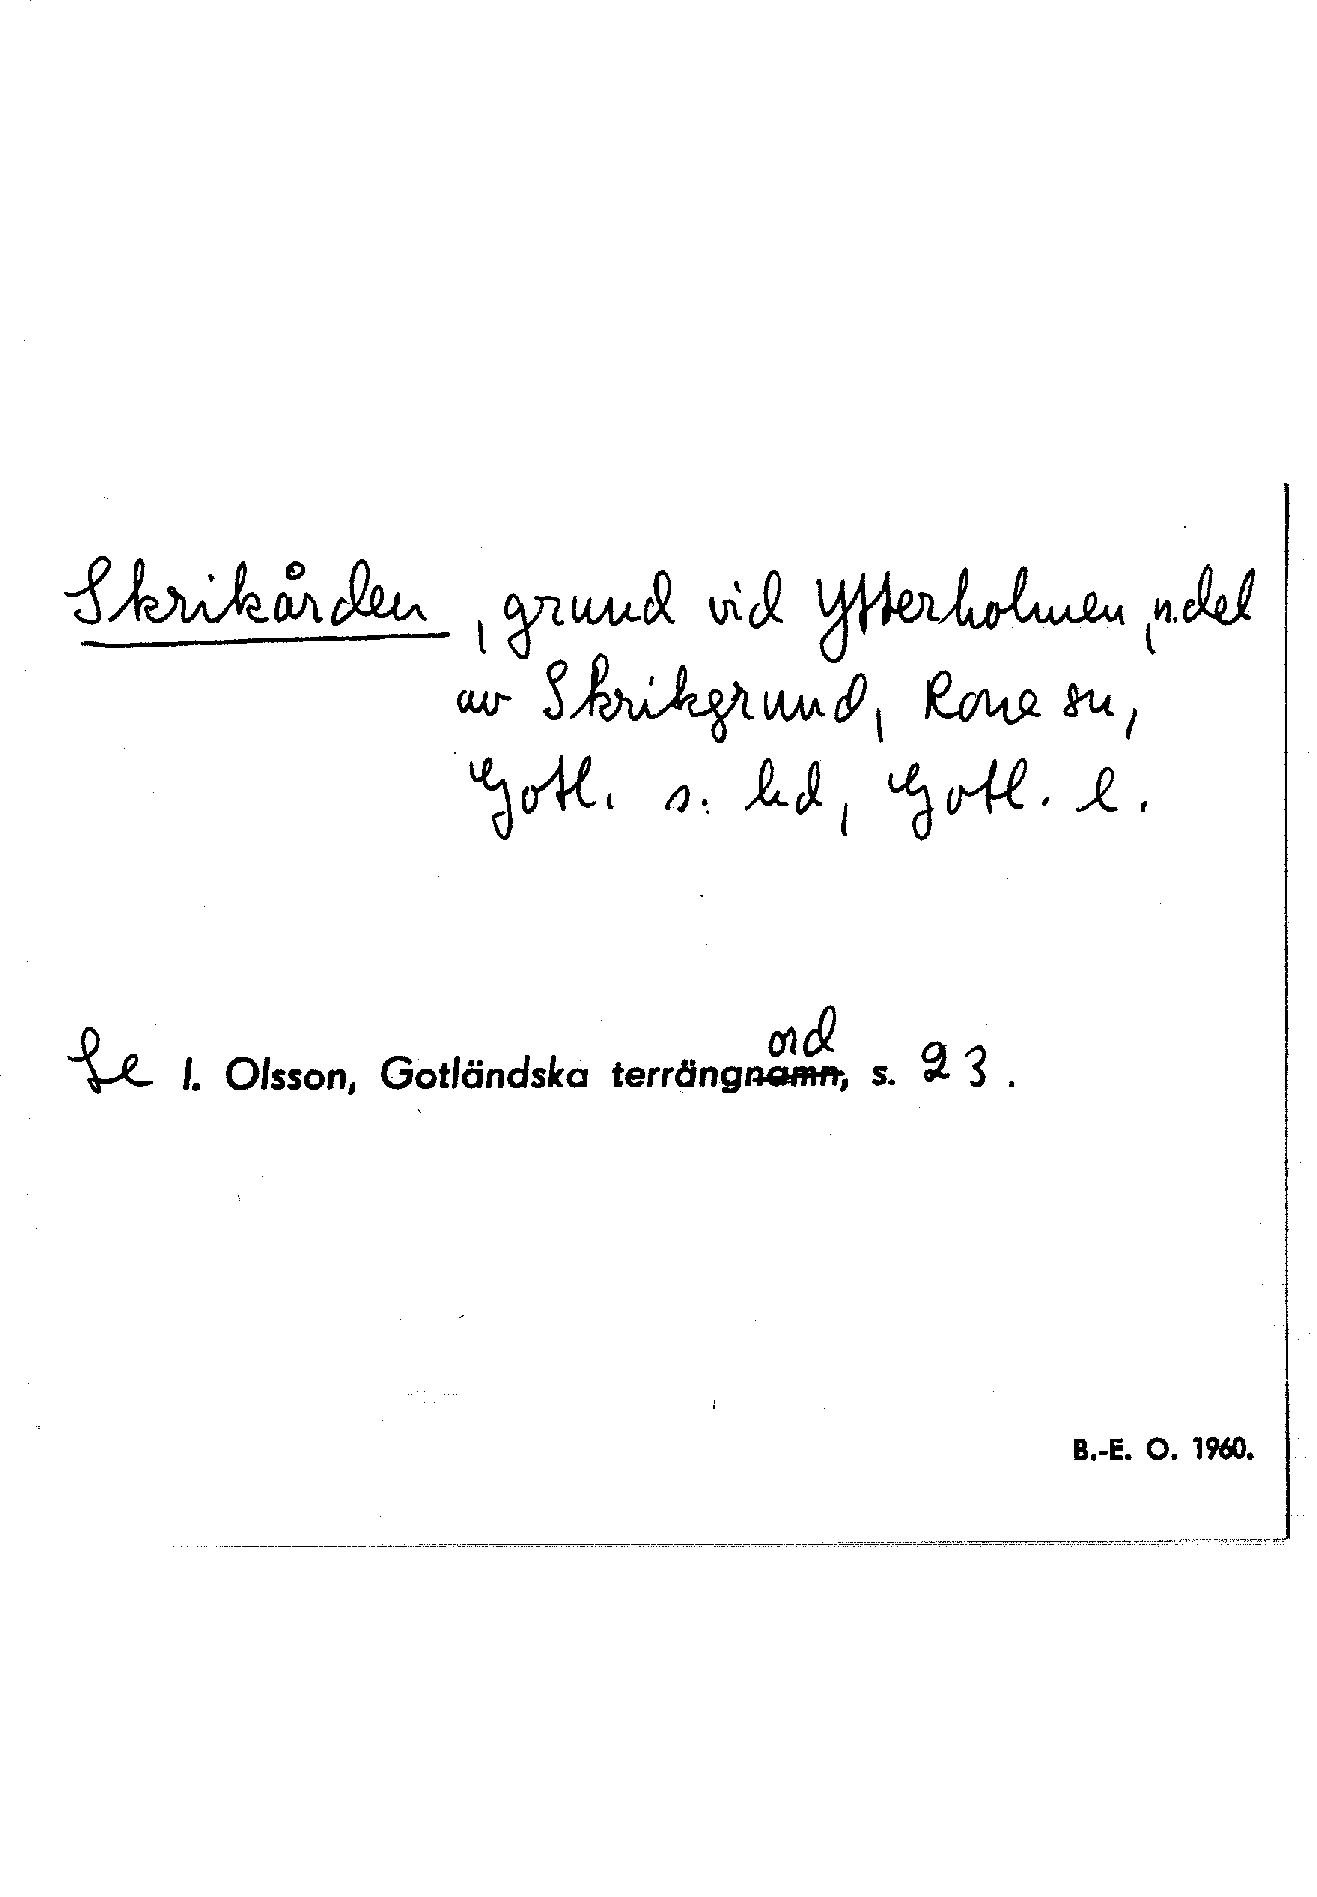 Skrikården, grund vid Ytterholmen, n. del
av Skrikgrund, Rone sn,
Gotl. s. hd, Gotl. l.
ord
Se I. Olsson, Gotländska terrängnamn, s. 23.
B.-E. O. 1960.